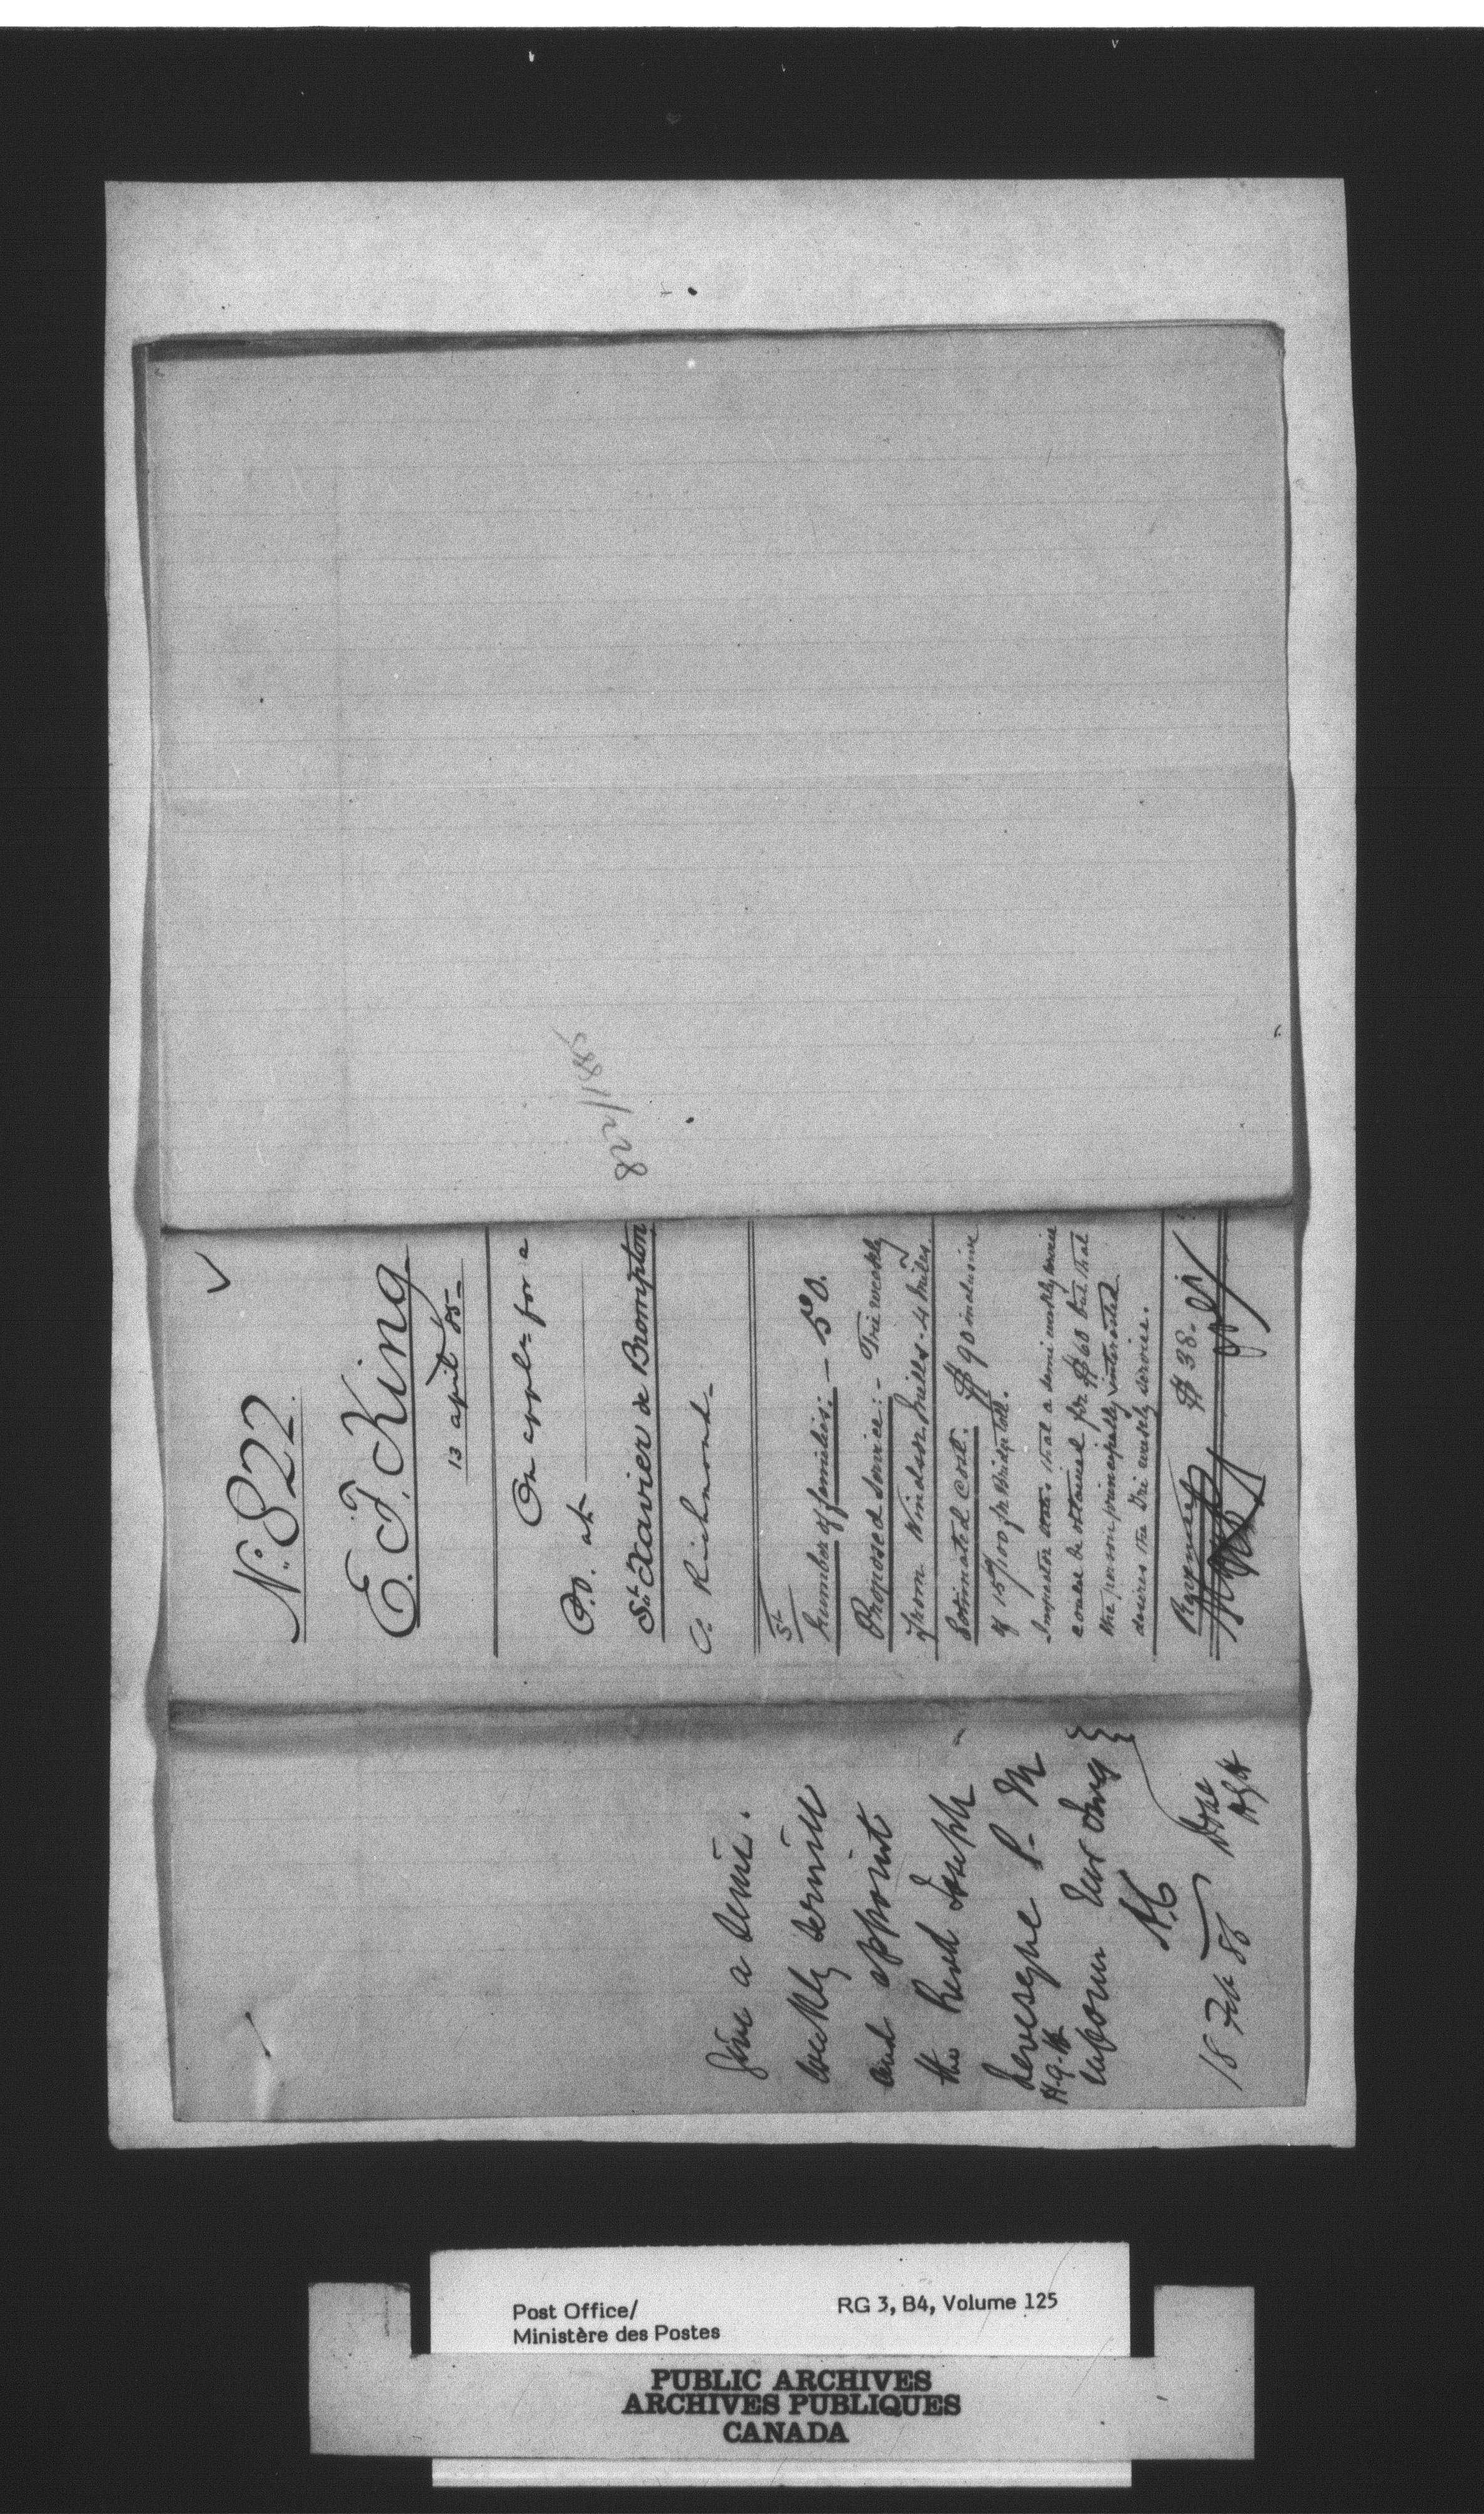 No. 822
E. T. King
13 april 85
On appln for a
P.O. at
St. Xavier de Brompton
C: Richmond
Number of families: - 50.
Proposed Service: - Tri weekly
from Windsor Mills - 4 miles.
Estimated Cost. $90 inclusive
of 15/100 for Bridge toll.
Inspector that a semi weekly service
could be obtained for $60 but that
the person principally interested
desires the Tri weekly service.
Revenue $38-
822/1885
Give a semi.
weekly service
and appoint
the Revd Joseph
Levesque P- M
H.G.H
inform
18 Feb 86
Done
Post Office/
Ministère des Postes
RG 3, B4, Volume 125
PUBLIC ARCHIVES
ARCHIVES PUBLIQUES
CANADA